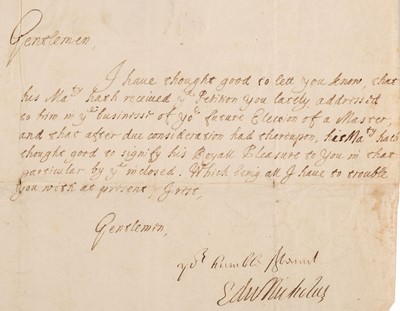 Gentlemen,
I have thought good to lett you know, that
his Ma:ty hath received ye Petition you lately addressed
to him in ye business of yor future Election of a Master,
and that after due consideration had thereupon, his Ma:ty hath
thought good to signify his Royall Pleasure to you in that
particular by ye inclosed. Which being all I have to trouble
you with at present I rest,
Gentlemen,
yor humble Servant
Edw: Nicholas